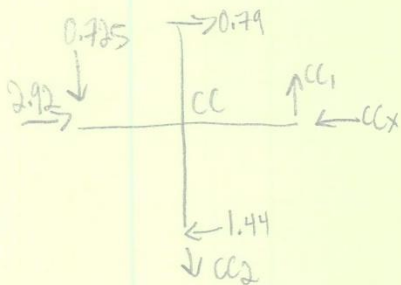 0.725
0.79
2.92
CC
CC1
CCx
1.44
CC2